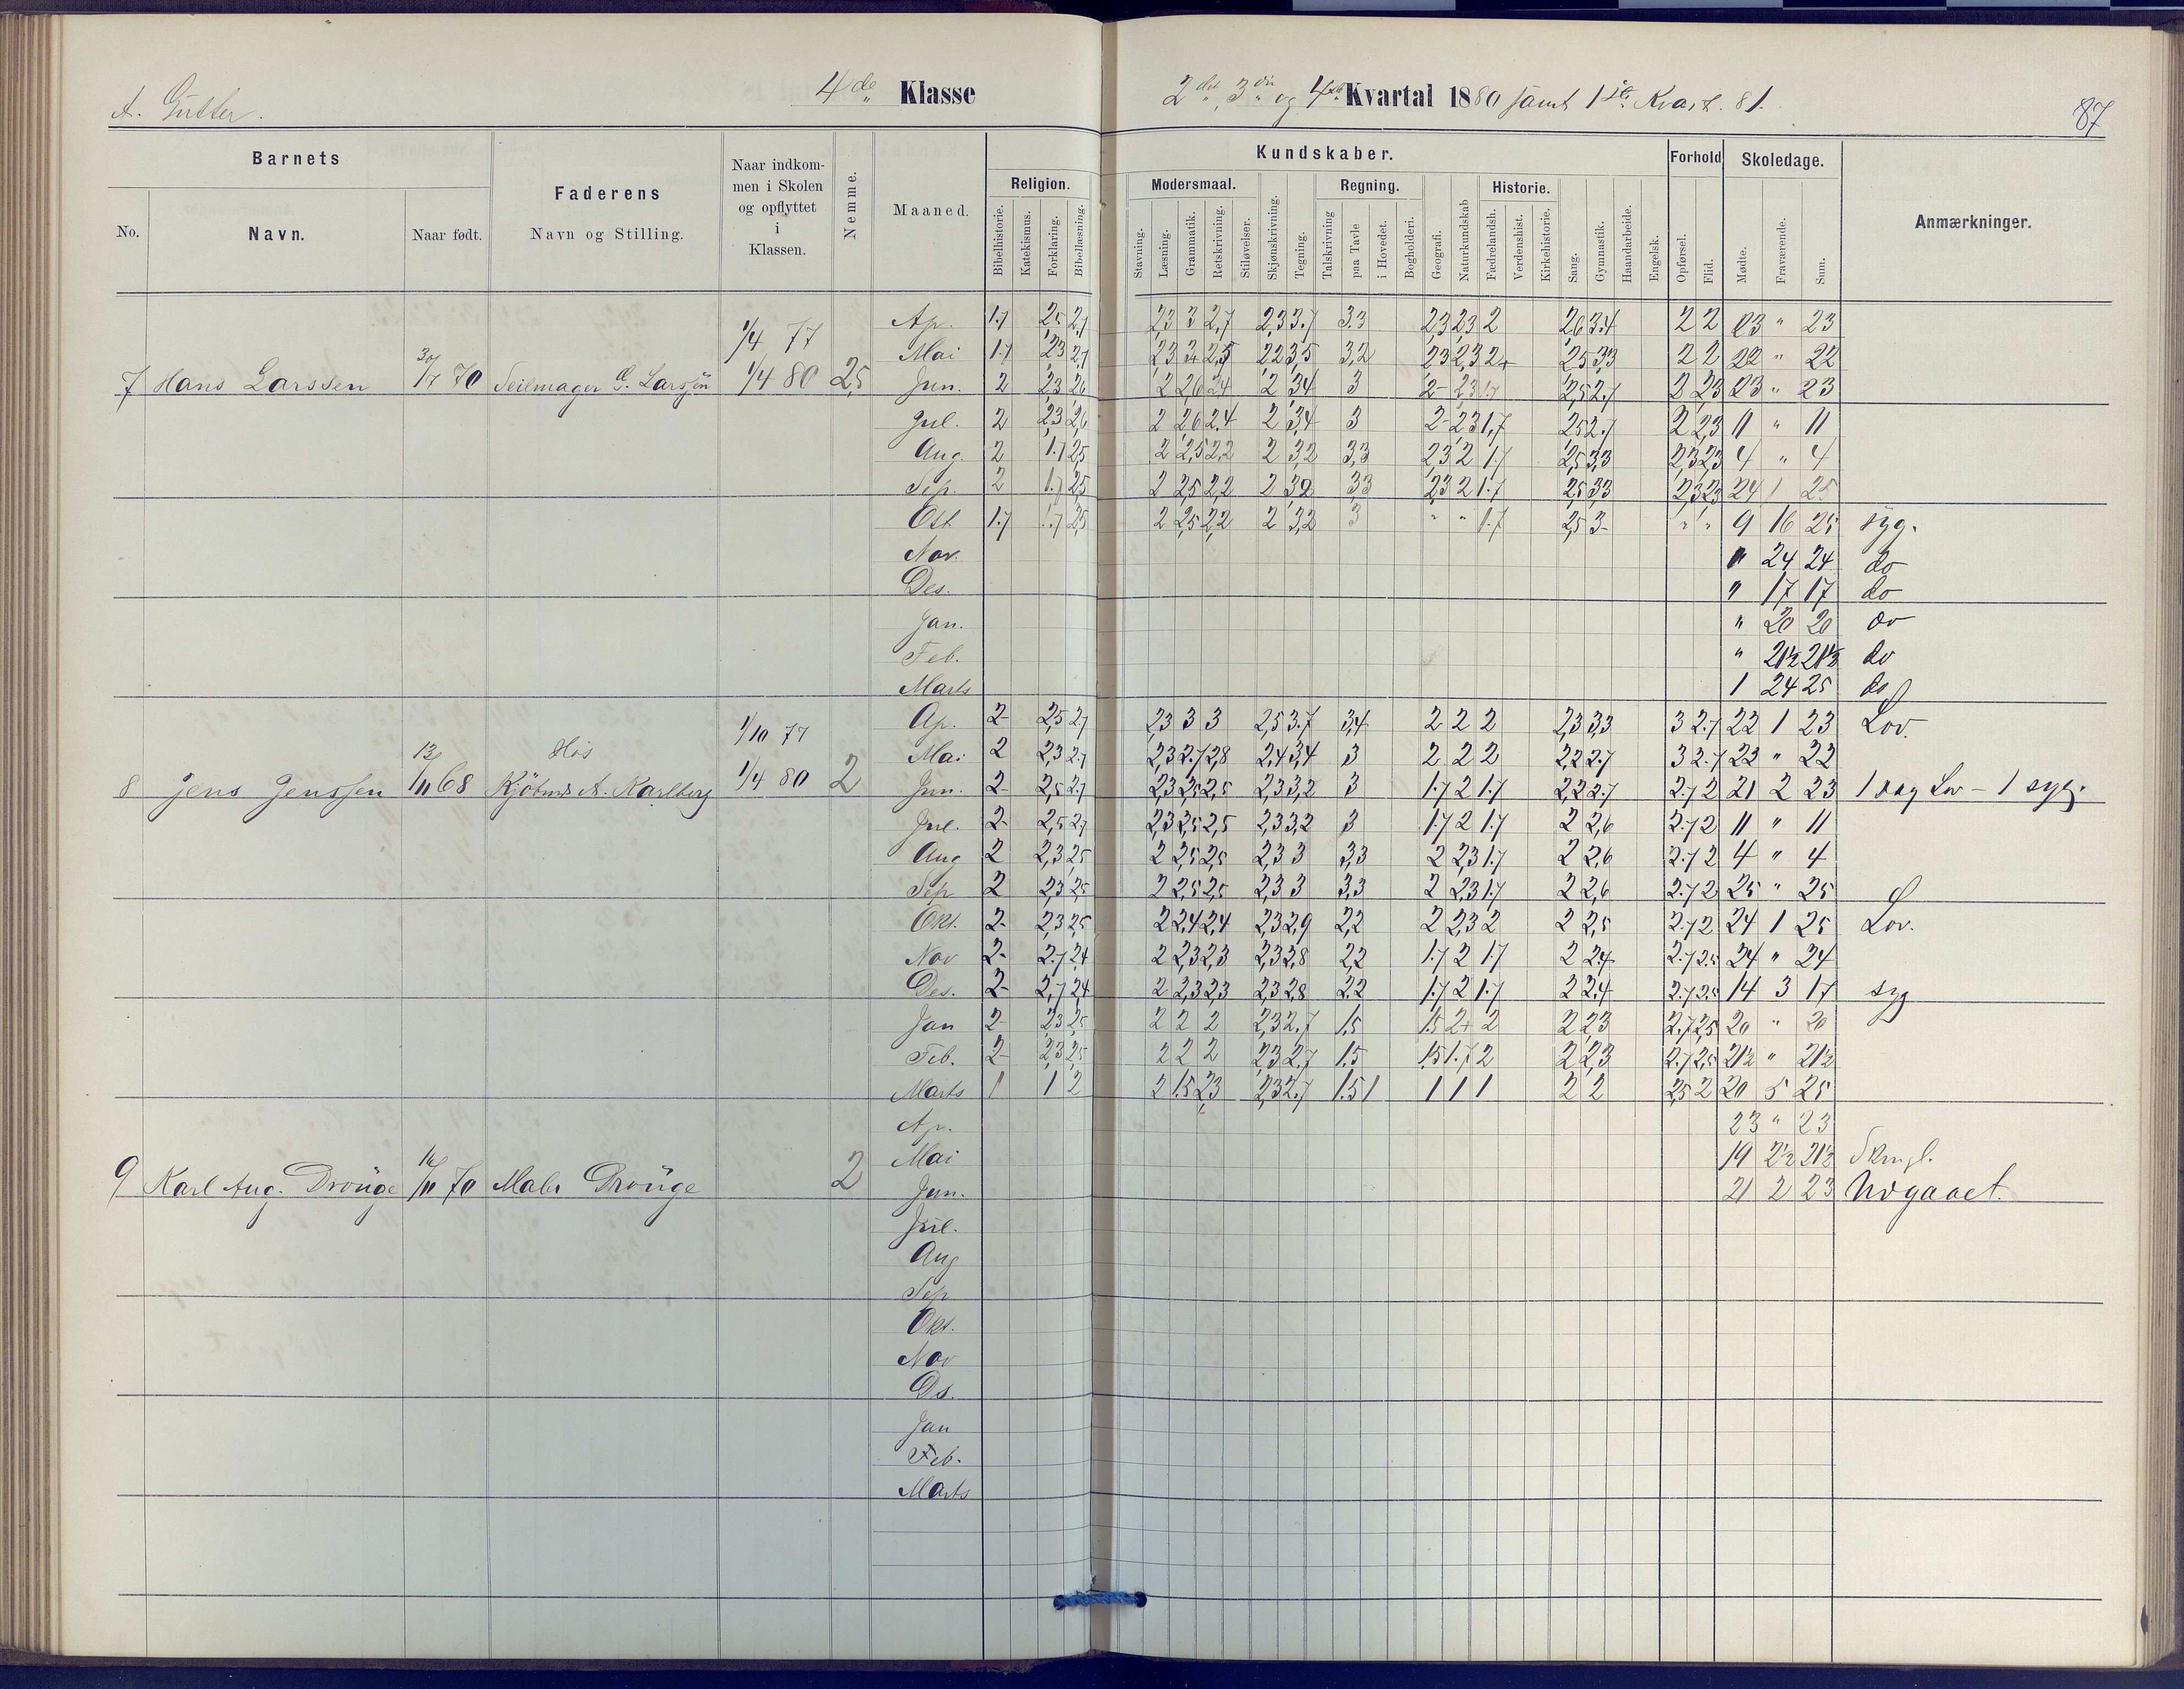 A. Gutter. 4de Klasse 2det, 3die og 4de Kvartal 1880 samt 1ste Kvart. 81. 87
Barnets
No.
Navn.
Naar født.
Faderens
Navn og Stilling.
Naar indkom-
men i Skolen
og opflyttet
i
Klassen.
Nemme.
Maaned.
Kundskaber.
Religion.
Bibelhistorie.
Katekismus.
Forklaring.
Bibellæsning.
Modersmaal.
Stavning.
Læsning.
Grammatik.
Retskrivning.
Stiløvelser.
Skjønskrivning.
Tegning.
Regning.
Talskrivning
paa Tavle
i Hovedet.
Bogholderi.
Geografi.
Naturkundskab
Historie.
Fædrelandsh.
Verdenshist.
Kirkehistorie.
Sang.
Gymnastik.
Haandarbeide.
Engelsk.
Forhold
Opførsel.
Flid.
Skoledage.
Mødte.
Fraværende.
Sum.
Anmærkninger.
1/4 77 Ap. 1.7 2,5 2,7 2,3 3 2,7 2,3 3.7 3.3 2,3 2,3 2 2,6 3.4 2 2 23 " 23
Mai 1.7 2,3 2,7 2,3 3,4 2,5 2,2 3,5 3,2 2,3 2,3 2+ 2,5 3,3 2 2 22 " 22
7 Hans Larssen 30/7 70 Seilmager G. Larsen 1/4 80 2,5 Jun. 2 2,3 2,6 2 2,6 2,4 2 3,4 3 2- 2,3 1.7 2,5 2.7 2 2,3 23 " 23
Jul. 2 2,3 2,6 2 2,6 2,4 2 3,4 3 2- 2,3 1,7 2,5 2.7 2 2,3 11 " 11
Aug. 2 1.7 2,5 2 2,5 2,2 2 3,2 3,3 2,3 2 1.7 2,5 3,3 2,3 2,3 4 " 4
Sep. 2 1.7 2,5 2 2,5 2,2 2 3,2 3,3 2,3 2 1.7 2,5 3,3 2,3 2,3 24 1 25
Okt 1.7 1.7 2,5 2 2,5 2,2 2 3,2 3 " " 1.7 2,5 3- " " 9 16 25 syg.
Nov. " 24 24 do
Des. " 17 17 do
Jan. " 20 20 do
Feb. " 21½ 21½ do
Marts 1 24 25 do
1/10 77 Ap. 2- 2,5 2,7 2,3 3 3 2,5 3.7 3,4 2 2 2 2,3 3,3 3 2.7 22 1 23 Lov.
Hos
Mai 2 2,3 2.7 2,3 2.7 2,8 2,4 3,4 3 2 2 2 2,2 2.7 3 2.7 22 " 22
8 Jens Jenssen 13/11 68 Kjöbmd A. Karlberg 1/4 80 2 Jun. 2- 2,5 2.7 2,3 2,5 2,5 2,3 3,2 3 1.7 2 1.7 2,2 2.7 2.7 2 21 2 23 1 dag Lov – 1 syg.
Jul. 2- 2,5 2,7 2,3 2,5 2,5 2,3 3,2 3 1.7 2 1.7 2 2,6 2.7 2 11 " 11
Aug 2 2,3 2,5 2 2,5 2,5 2,3 3 3,3 2 2,3 1.7 2 2,6 2.7 2 4 " 4
Sep 2 2,3 2,5 2 2,5 2,5 2,3 3 3,3 2 2,3 1.7 2 2,6 2.7 2 25 " 25
Okt. 2- 2,3 2,5 2 2,4 2,4 2,3 2,9 2,2 2 2,3 2 2 2,5 2.7 2 24 1 25 Lov.
Nov 2- 2.7 2,4 2 2,3 2,3 2,3 2,8 2,2 1.7 2 1.7 2 2,4 2.7 2,5 24 " 24
Des. 2- 2,7 2,4 2 2,3 2,3 2,3 2,8 2,2 1.7 2 1.7 2 2,4 2.7 2,5 14 3 17 syg
Jan 2- 2,3 2,5 2 2 2 2,3 2.7 1.5 1.5 2+ 2 2 2,3 2.7 2,5 20 " 20
Feb. 2- 2,3 2,5 2 2 2 2,3 2.7 1.5 1.5 1.7 2 2 2,3 2.7 2,5 21½ " 21½
Marts 1 1 2 2 1.5 2,3 2,3 2.7 1.5 1 1 1 1 2 2 2,5 2 20 5 25
Ap. 23 " 23
Mai 19 2½ 21½
9 Karl Aug. Drouge 16/11 70 Maler Drouge 2 Jun. 21 2 23 Udgaaet.
Jul.
Aug
Sep
Okt.
Nov
Ds.
Jan
Feb.
Marts